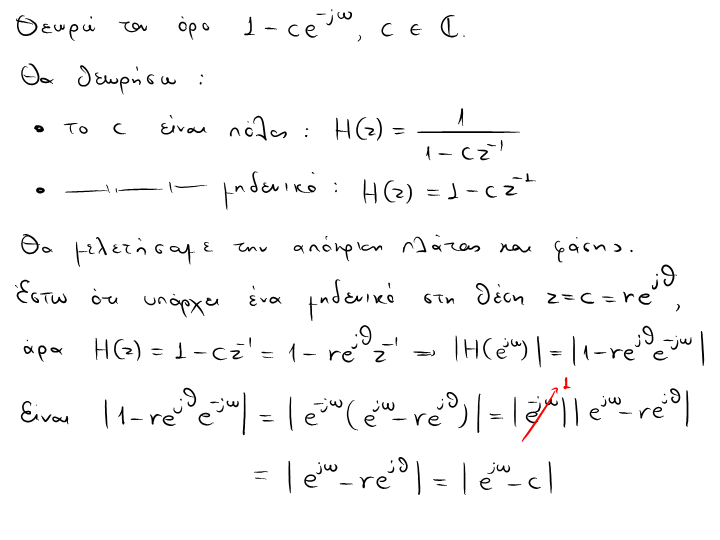 Θεωρώ τον όρο 1 - ce^{-jω}, c ∈ ℂ.
Θα θεωρήσω :
• το c είναι πόλος : H(z) = \frac{1}{1 - cz^{-1}}
• —"— μηδενικό : H(z) = 1 - cz^{-1}
Θα μελετήσαμε την απόκριση πλάτος και φάσης.
Έστω ότι υπάρχει ένα μηδενικό στη θέση z = c = re^{jθ},
άρα H(z) = 1 - cz^{-1} = 1 - re^{jθ}z^{-1} ⇒ |H(e^{jω})| = |1 - re^{jθ}e^{-jω}|
Είναι |1 - re^{jθ}e^{-jω}| = |e^{-jω}(e^{jω} - re^{jθ})| = |e^{-jω}|^{1}|e^{jω} - re^{jθ}|
= |e^{jω} - re^{jθ}| = |e^{jω} - c|